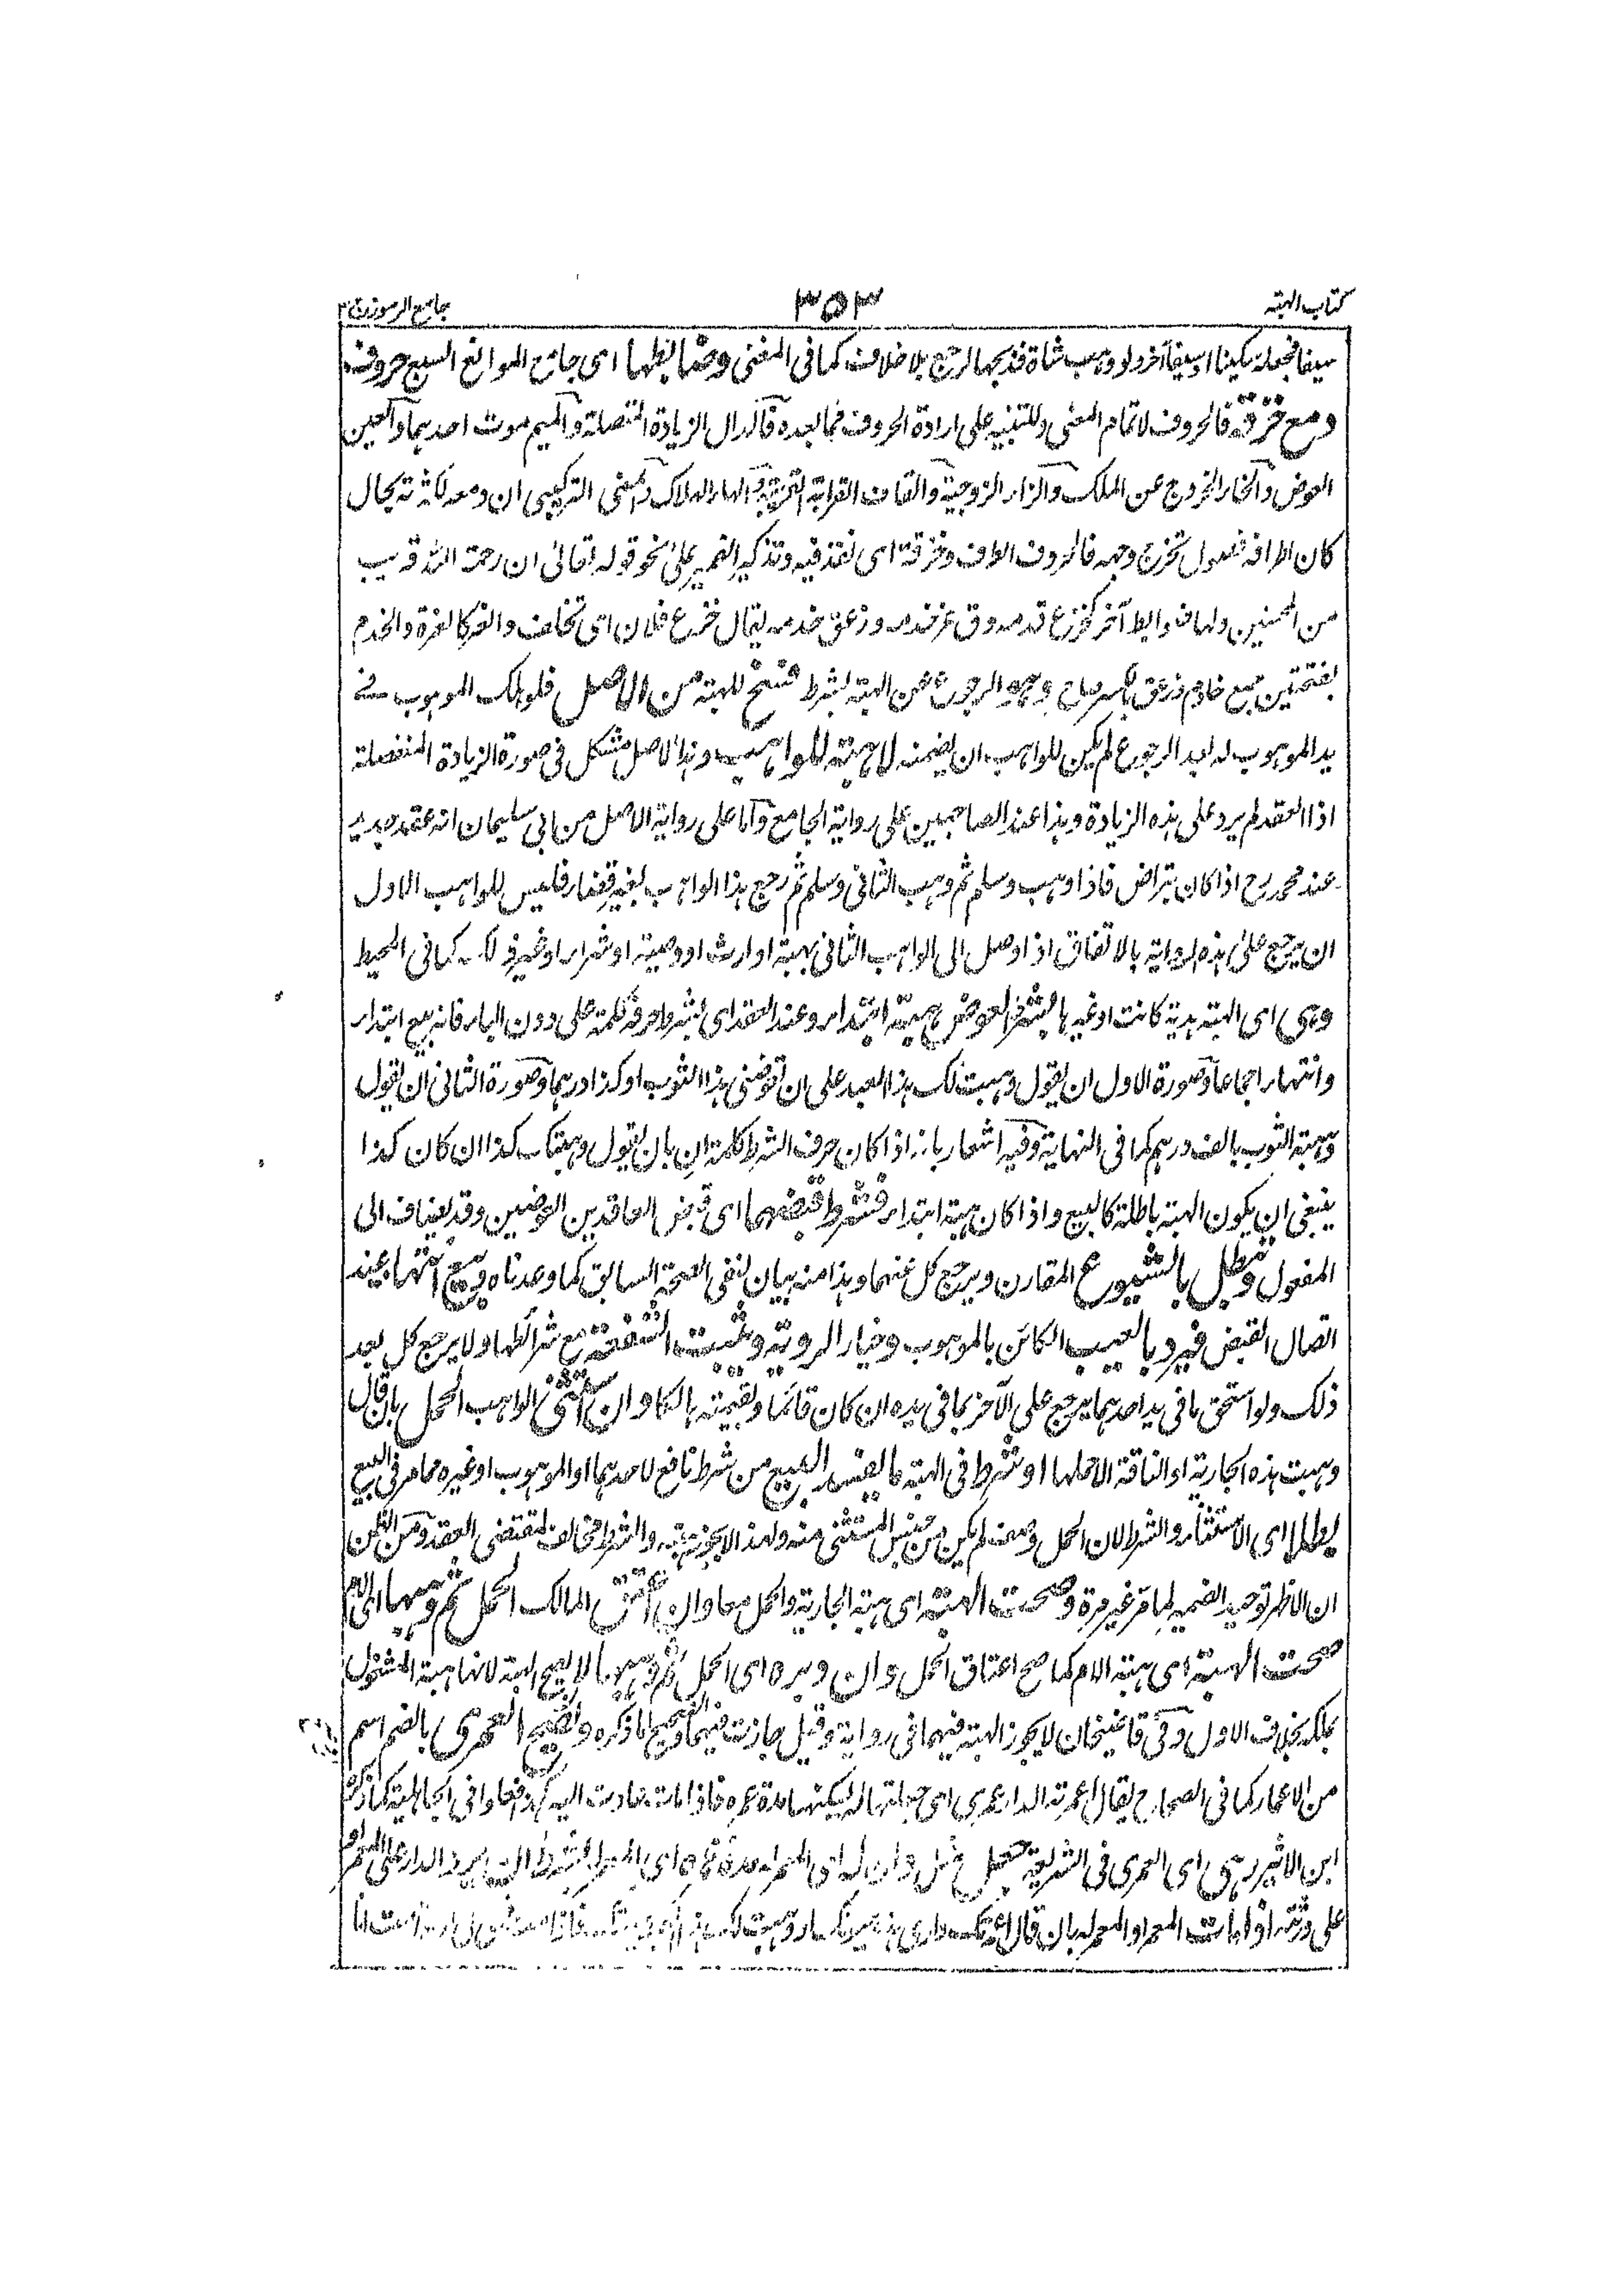 كتاب الهبة
٣٥٣
جامع الرموز ج ٢
سيفا فجعله سكينا او سيفا آخر ولو وهب شاة فذبحها لرجع بلا خلاف كما فى المغنى وضابطها اى جامع الموانع السبع حروف
دمع خزقه فالحروف لاتمام المعنى وللتنبيه على ارادة الحروف فما بعده فالدال الزيادة المتصلة والميم موت احدهما والعين
العوض والخاء الخروج عن الملك والزاء الزوجية والقاف القرابة المحرمية والهاء الهلاك والمعنى التركيبى ان دمعه لكثرته بحال
كان اطرافه نصول تخرج وجهه فالحروف الطرف وخزقه اى نفذ فيه وتذكير الضمير على نحو قوله تعالى ان رحمة الله قريب
من المحسنين ولها ضوابط آخر
بفتحتين جمع خادم وزعق بالكسر صاح وهو الرجوع عن الهبة بشرط فسخ للهبة من الاصل فلو هلك الموهوب فى
يد الموهوب له بعد الرجوع لم يكن للواهب ان يضمنه لا هبة للواهب وهذا الاصل مشكل فى صورة الزيادة المنفصلة
اذا العقد لم يرد على هذه الزيادة وهذا عند الصاحبين على رواية الجامع واما على رواية الاصل من ابى سليمان انه عقد جديد
عند محمد رح اذا كان بتراض فاذا وهب وسلم ثم وهب الثانى وسلم ثم رجع هذا الواهب بغير قضاء فليس للواهب الاول
ان يرجع على هذه الرواية بالاتفاق اذا وصل الى الواهب الثانى بهبة او ارث او وصية او شراء او غير ذلك كما فى المحيط
وهى اى الهبة هدية كانت او غيرها بشرط العوض هبة ابتداء وعند العقد اى بشرط حرفه كلمة على دون الباء فانه بيع ابتداء
وانتهاء اجماعا وصورة الاول ان يقول وهبت لك هذا العبد على ان تعوضنى هذا الثوب او كذا درهما وصورة الثانى ان يقول
وهبته الثوب بالف درهم كما فى النهاية وفيه اشعار بانه اذا كان حرف الشرط كلمة ان بان يقول وهبتك كذا ان كان كذا
ينبغى ان يكون الهبة باطلة كالبيع واذا كان هبة ابتداء فشرط قبضهما اى قبض العاقدين العوضين وقد يضاف الى
المفعول وتبطل بالشيوع المقارن ويرجع كل عنهما وهذا منه بيان لنفى الصحة السابق كما وعدناه وبيع انتهاء عند
اتصال القبض فيرد بالعيب الكائن بالموهوب وخيار الروية وتثبت الشفعة مع شرائطها ولا يرجع كل بعد
ذلك ولو استحق ما فى يد احدهما يرجع على الآخر بما فى يده ان كان قائما وبقيمته هالكا وان استثنى الواهب الحمل بان قال
وهبت هذه الجارية او الناقة الا حملها او شرط فى الهبة ما يفسد البيع من شرط نافع لاحدهما او الموهوب او غيره مما مر فى البيع
بطلا اى الاستثناء والشرط لان الحمل وصف لم يكن من جنس المستثنى منه ولهذا لا يجوز هبته والشرط مخالف لمقتضى العقد ومن الظن
ان الاظهر توحيد الضمير لما مر غير مرة وصحت الهبة اى هبة الجارية والحمل معا وان اعتق المالك الحمل ثم وهبها اى الام
صحت الهبة اى هبة الام كما صح اعتاق الحمل وان دبره اى الحمل ثم وهبها لا يصح الهبة لانها هبة المشغول
بملكه بخلاف الاول وفى قاضيخان لا يجوز الهبة فيهما فى رواية وقيل جازت فيهما والصحيح ما ذكره وتصح العمرى بالضم اسم
من الاعمار كما فى الصحاح يقال اعمرته الدار عمرى اى جعلتها له ليسكنها مدة عمره فاذا مات عادت اليه كذا فعلوا فى الجاهلية كما ذكره
ابن الاثير وهى اى العمرى فى الشريعة جعل له اى للمعمر له مدة عمره اى المعمر بشرط ان يرد الدار على المعمر او
على ورثته اذا مات المعمر او المعمر له بان قال اعمرتك دارى هذه